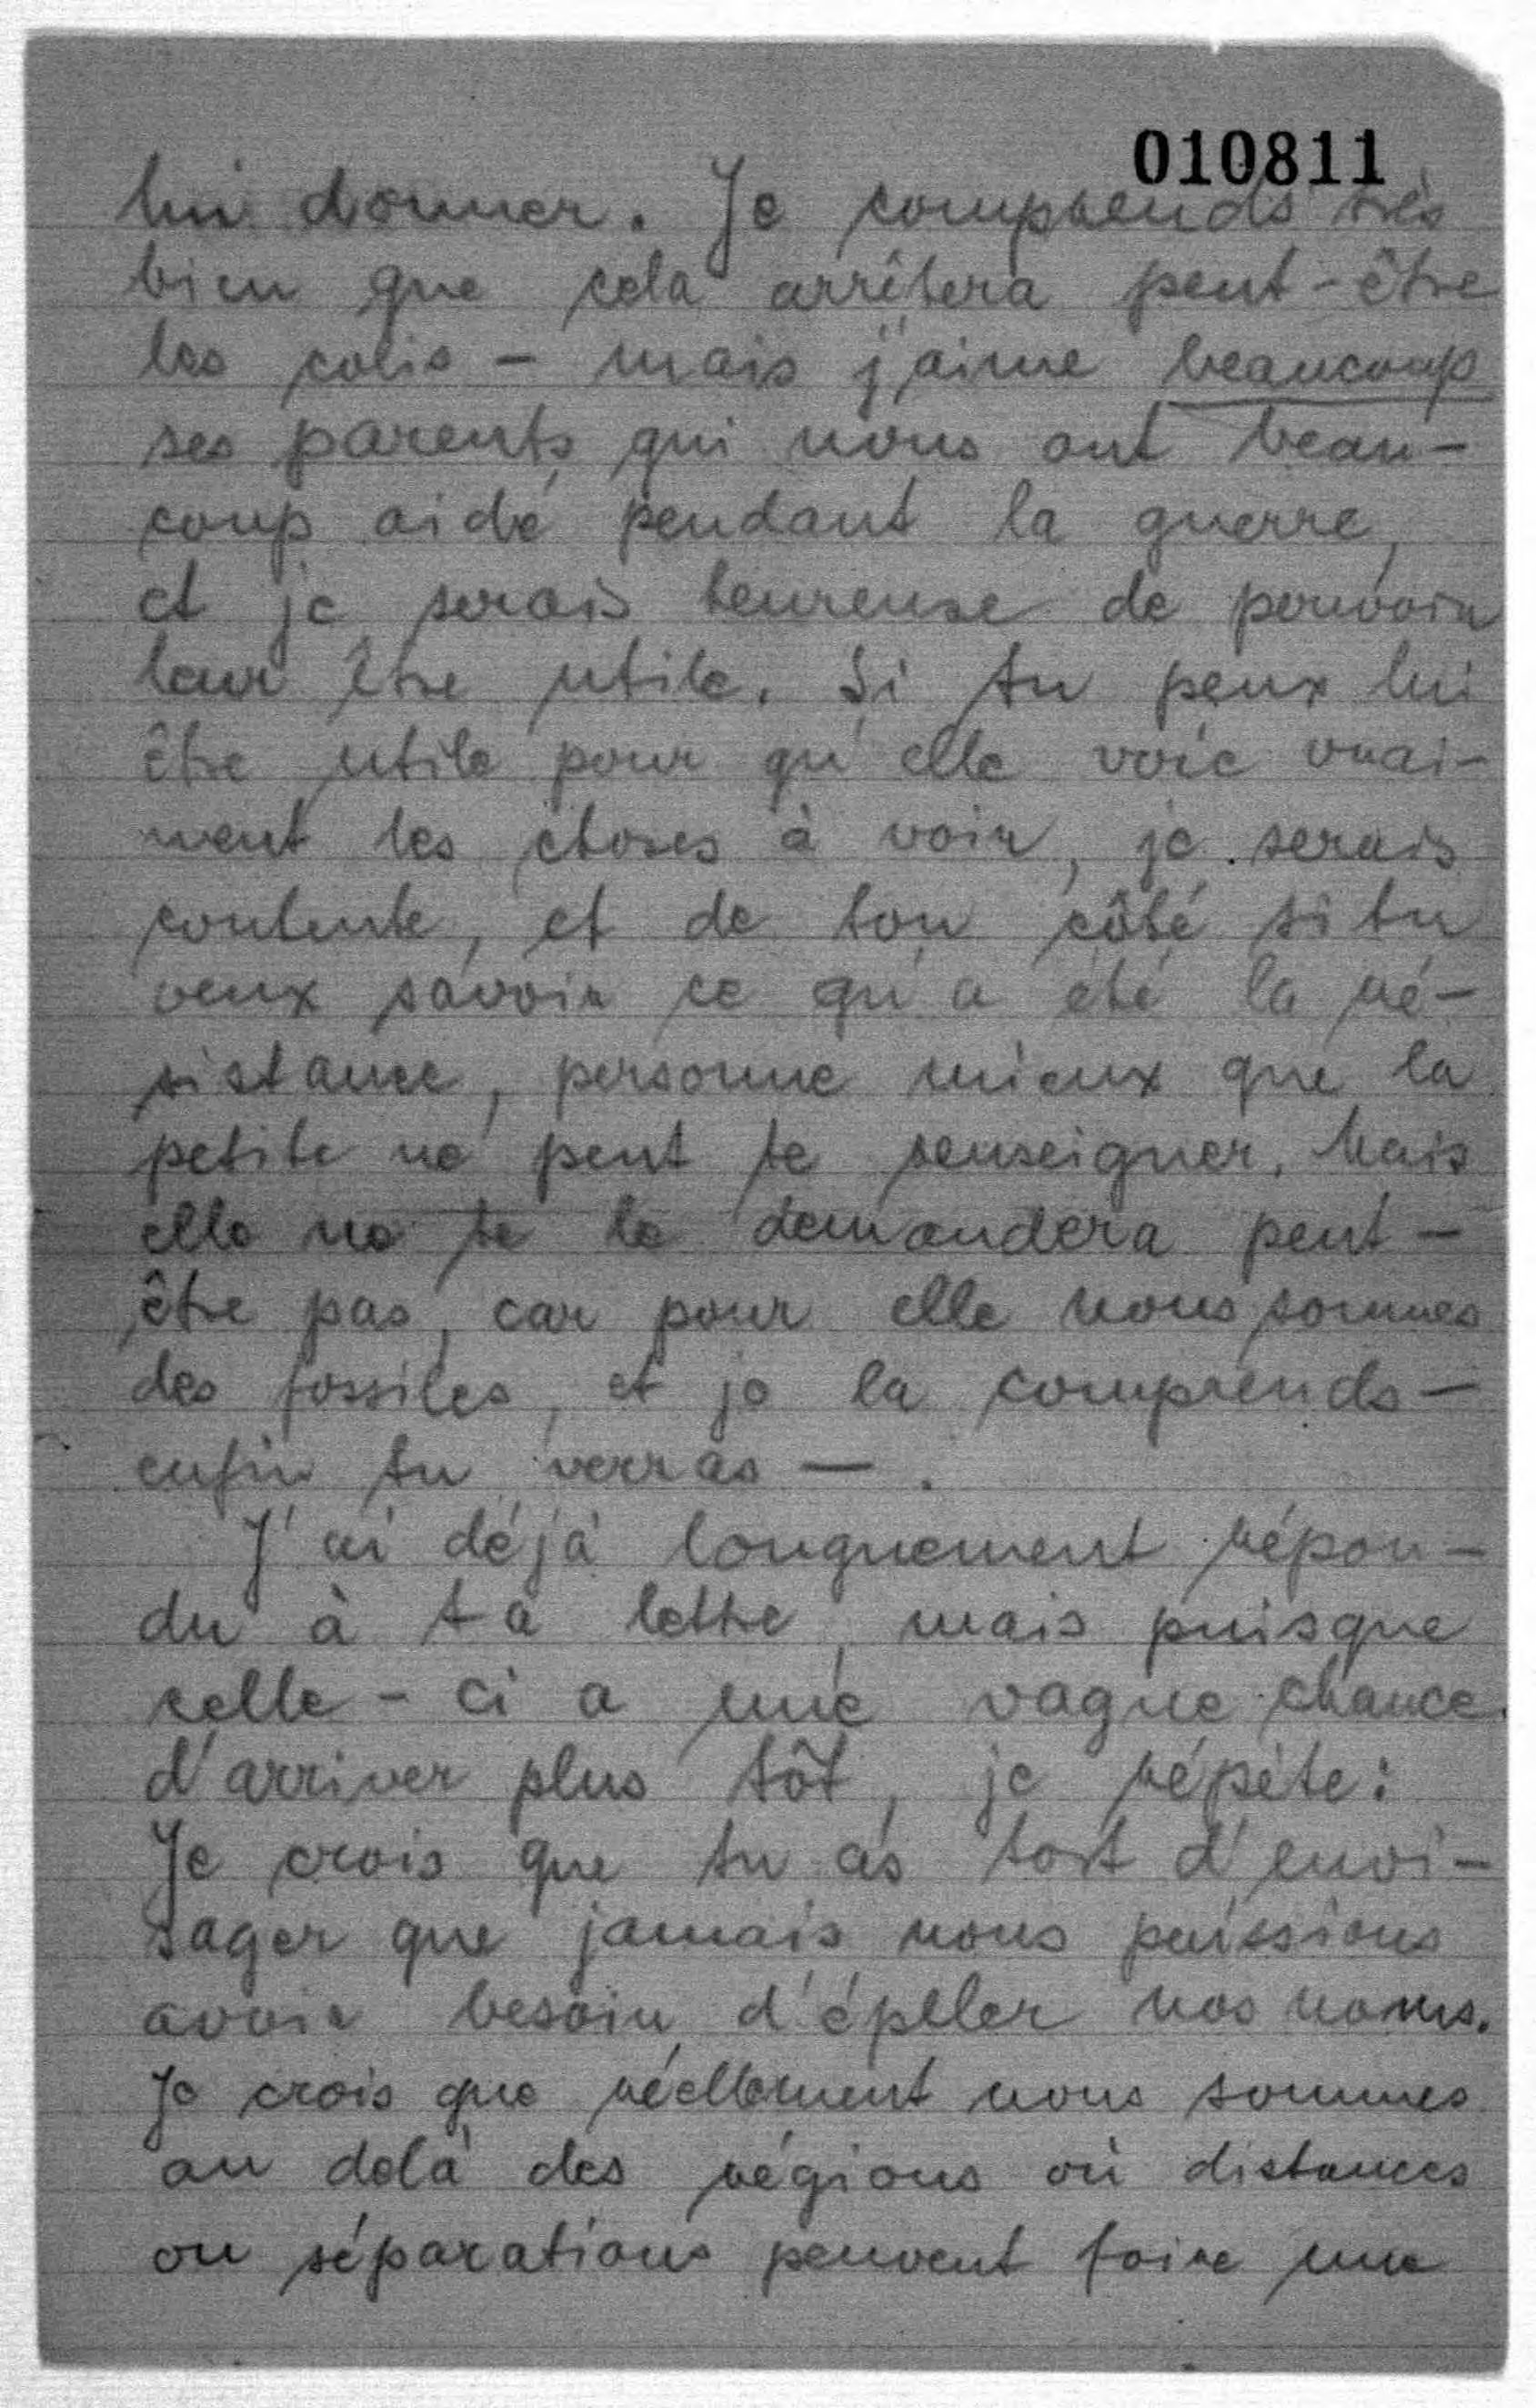 010811
lui donner. Je comprends très
bien que cela arrêtera peut-être
les colis - mais j'aime beaucoup
ses parents qui nous ont beau-
coup aidé pendant la guerre,
et je serais heureuse de pouvoir
leur être utile. Si tu peux lui
être utile pour qu'elle voie vrai-
ment les choses à voir, je serais
contente, et de ton côté si tu
veux savoir ce qu'a été la ré-
sistance, personne mieux que la
petite ne peut te renseigner. Mais
elle ne te le demandera peut-
être pas, car pour elle nous sommes
des fossiles, et je la comprends -
enfin tu verras - .
J'ai déjà longuement répon-
du à ta lettre, mais puisque
celle-ci a une vague chance
d'arriver plus tôt, je répète:
Je crois que tu as tort d'envi-
sager que jamais nous puissions
avoir besoin d'épeler nos noms.
Je crois que réellement nous sommes
au delà des régions où distances
ou séparations peuvent faire une